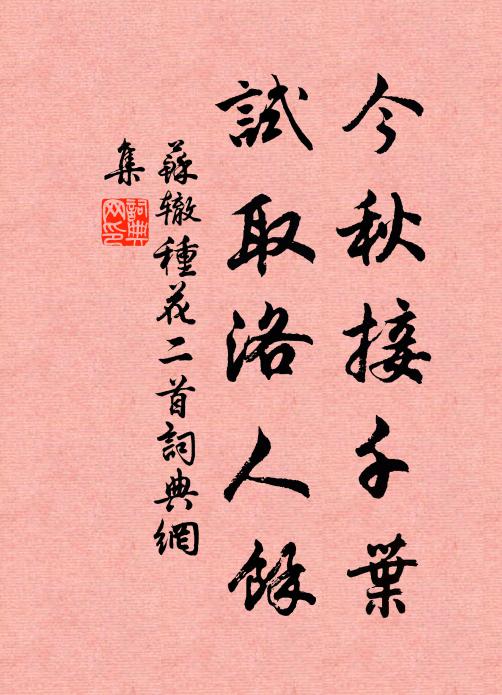 今秋接千葉
試取洛人餘
蘇辙種花二首詞典網
集
詞典
网印